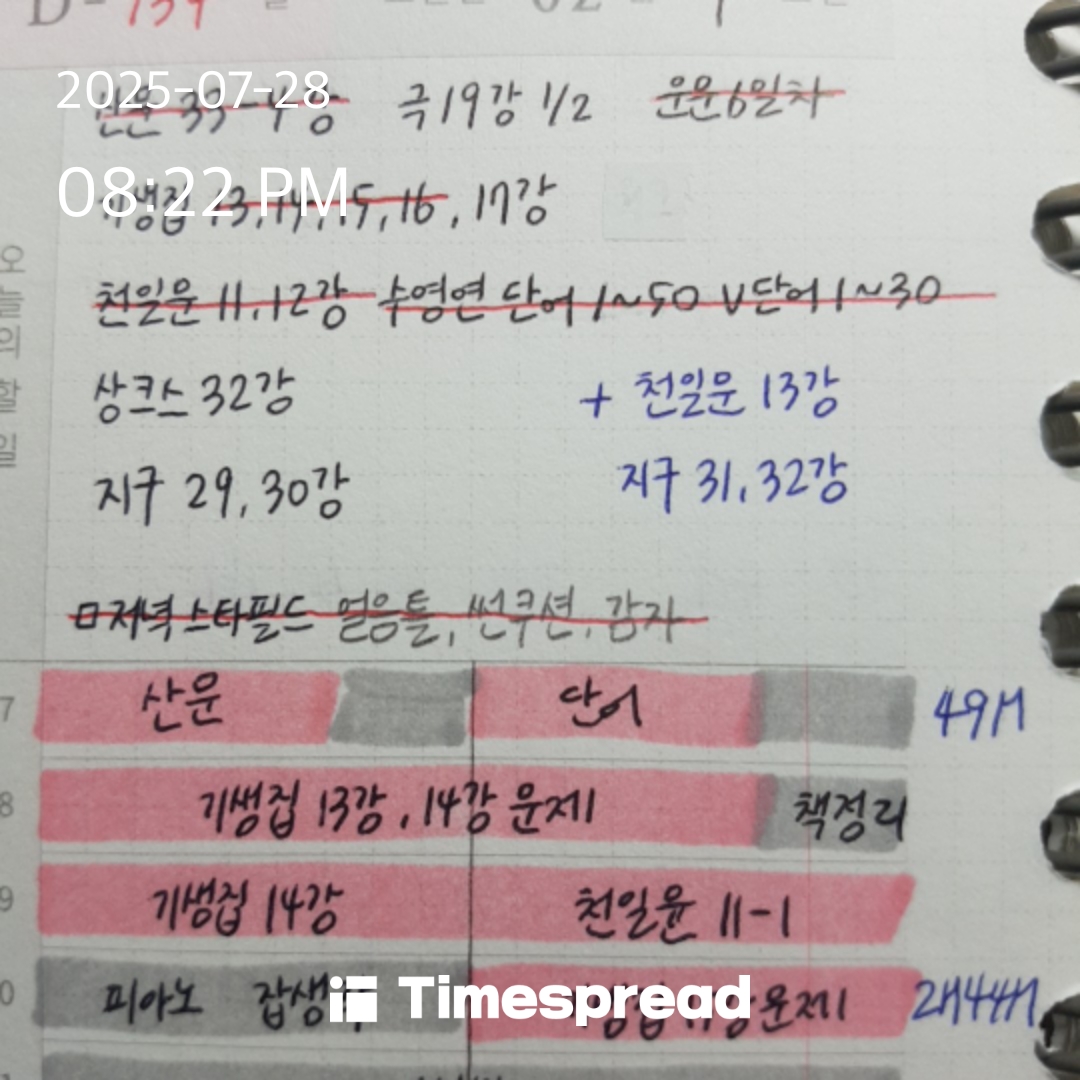 D-139
2025-07-28
극19강 1/2 운문6일차
08:22 PM
13,14,15,16, 17강
오늘의 할 일
천일문 11.12강 수영연 단어 1~50 V단어 1~30
상크스 32강 + 천일문 13강
지구 29, 30강 지구 31, 32강
ㅁ저녁 스타필드 얼음틀, 썬쿠션, 감자
7 산문 단어 49M
8 기생집 13강, 14강 문제 책정리
9 기생집 14강 천일문 11-1
0 피아노 문제 2H44M
Timespread